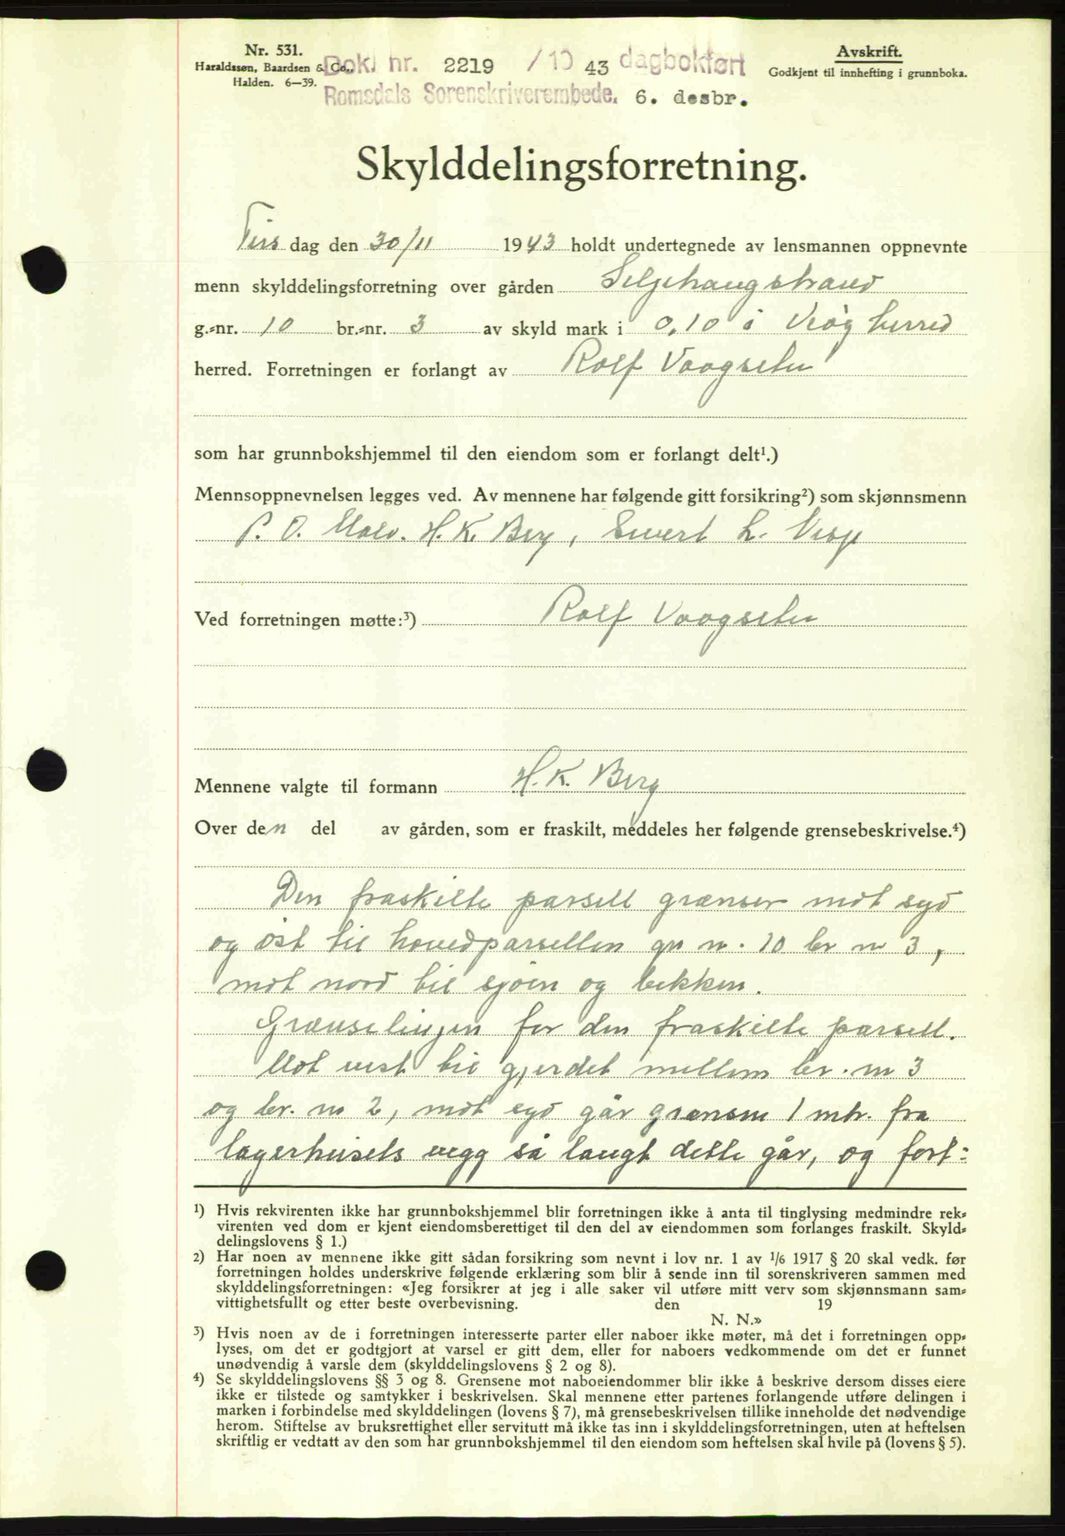 Nr. 531.
Haraldssøn, Baardsen & Co.,
Halden. 6—39.
Dok. nr. 2219 /19 43 dagbokført
Romsdals Sorenskriverembede. 6. desbr.
Avskrift.
Godkjent til innhefting i grunnboka.
Skylddelingsforretning.
Tirs dag den 30/11 1943 holdt undertegnede av lensmannen oppnevnte
menn skylddelingsforretning over gården Seljehaugstrand
g.-nr. 10 br.-nr. 3 av skyld mark i 0,10 i Veøy herred
herred. Forretningen er forlangt av Rolf Vaagseter
som har grunnbokshjemmel til den eiendom som er forlangt delt¹.)
Mennsoppnevnelsen legges ved. Av mennene har følgende gitt forsikring²) som skjønnsmenn
P. O. H. K. Berg, Sivert L.
Ved forretningen møtte:³) Rolf Vaagseter
Mennene valgte til formann H. K. Berg
Over den del av gården, som er fraskilt, meddeles her følgende grensebeskrivelse.⁴)
Den fraskilte parsell grænser mot syd
og øst til hovedparsellen gr n. 10 br nr 3,
mot nord til sjøen og bekken.
Grænselinjen for den fraskilte parsell.
Mot vest til gjerdet mellem br. nr 3
og br. nr 2, mot syd går grænsen 1 mtr. fra
lagerhusets vegg så langt dette går, og fort-
¹) Hvis rekvirenten ikke har grunnbokshjemmel blir forretningen ikke å anta til tinglysing medmindre rek-
virenten ved dom er kjent eiendomsberettiget til den del av eiendommen som forlanges fraskilt. Skyld-
delingslovens § 1.)
²) Har noen av mennene ikke gitt sådan forsikring som nevnt i lov nr. 1 av 1/6 1917 § 20 skal vedk. før
forretningen holdes underskrive følgende erklæring som blir å sende inn til sorenskriveren sammen med
skylddelingsforretningen: «Jeg forsikrer at jeg i alle saker vil utføre mitt verv som skjønnsmann sam-
vittighetsfullt og etter beste overbevisning. den 19
N. N.»
³) Hvis noen av de i forretningen interesserte parter eller naboer ikke møter, må det i forretningen opp-
lyses, om det er godtgjort at varsel er gitt dem, eller for naboers vedkommende om det er funnet
unødvendig å varsle dem (skylddelingslovens § 2 og 8).
⁴) Se skylddelingslovens §§ 3 og 8. Grensene mot naboeiendommer blir ikke å beskrive dersom disses eiere
ikke er tilstede og samtykker i beskrivelsen. Skal mennene etter partenes forlangende utføre delingen i
marken i forbindelse med skylddelingen (lovens § 7), må grensebeskrivelsen tillike inneholde det nødvendige
herom. Stiftelse av bruksrettighet eller servitutt må ikke tas inn i skylddelingsforretningen, uten at heftelsen
skriftlig er vedtatt av den som har grunnbokshjemmel til den eiendom som heftelsen skal hvile på (lovens § 5).